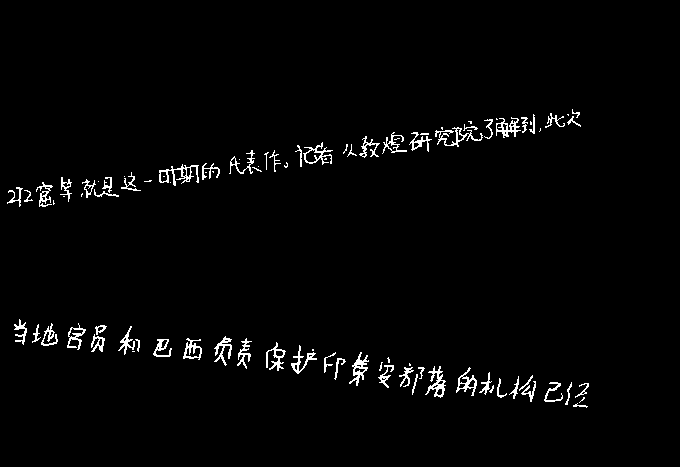 212窟等就是这一时期的代表作。记者从敦煌研究院了解到,此次
当地官员和巴西负责保护印第安部落的机构已经